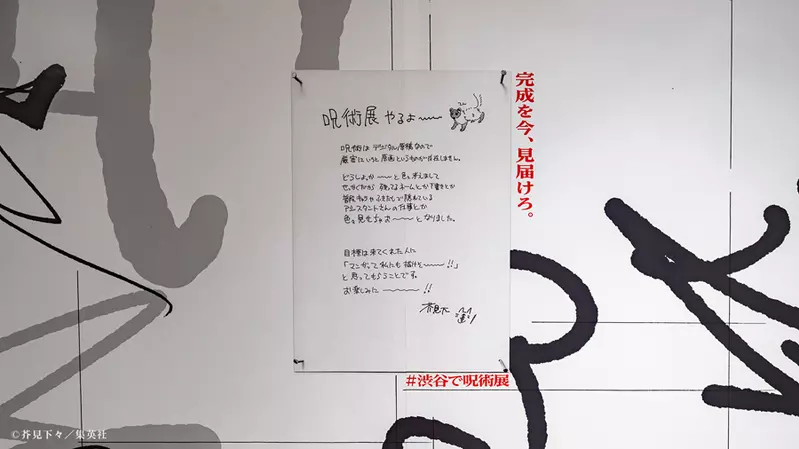 呪術展やるよ〜〜
呪術は デジタル原稿なので
厳密にいうと 原画というものが存在しません。
どうしよっか〜〜と色々考えまして
せっかくだから 残ってるネームとか下書きとか
普段 ふきだしで隠れている
アシスタントさんの仕事とか
色々見せちゃお〜〜〜となりました。
目標は来てくれた人に
「マンガって私にも描けそ〜〜〜!!」
と思ってもらうことです。
お楽しみに 〜〜〜〜 !!
芥見下々
完成を今、見届けろ。
#渋谷で呪術展
©芥見下々／集英社